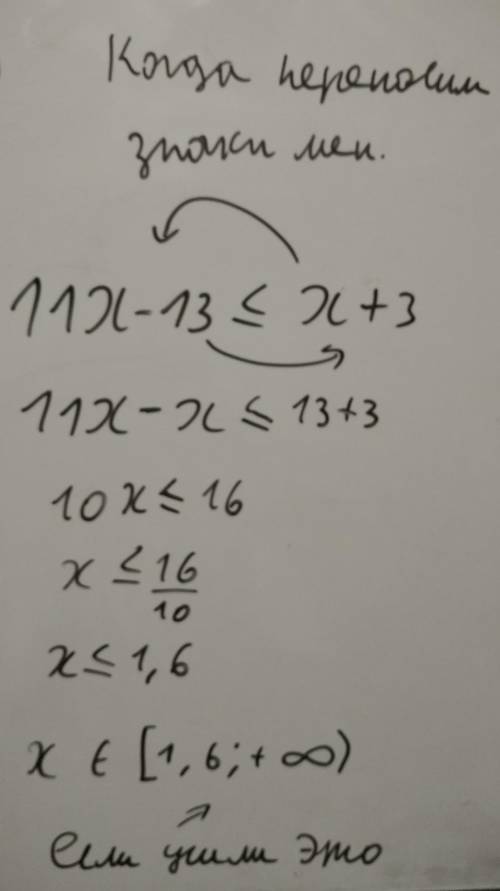 Когда переносим
знаки мен.
11x - 13 ≤ x + 3
11x - x ≤ 13 + 3
10x ≤ 16
x ≤ 16/10
x ≤ 1,6
x ∈ [1,6; +∞)
Если учили это